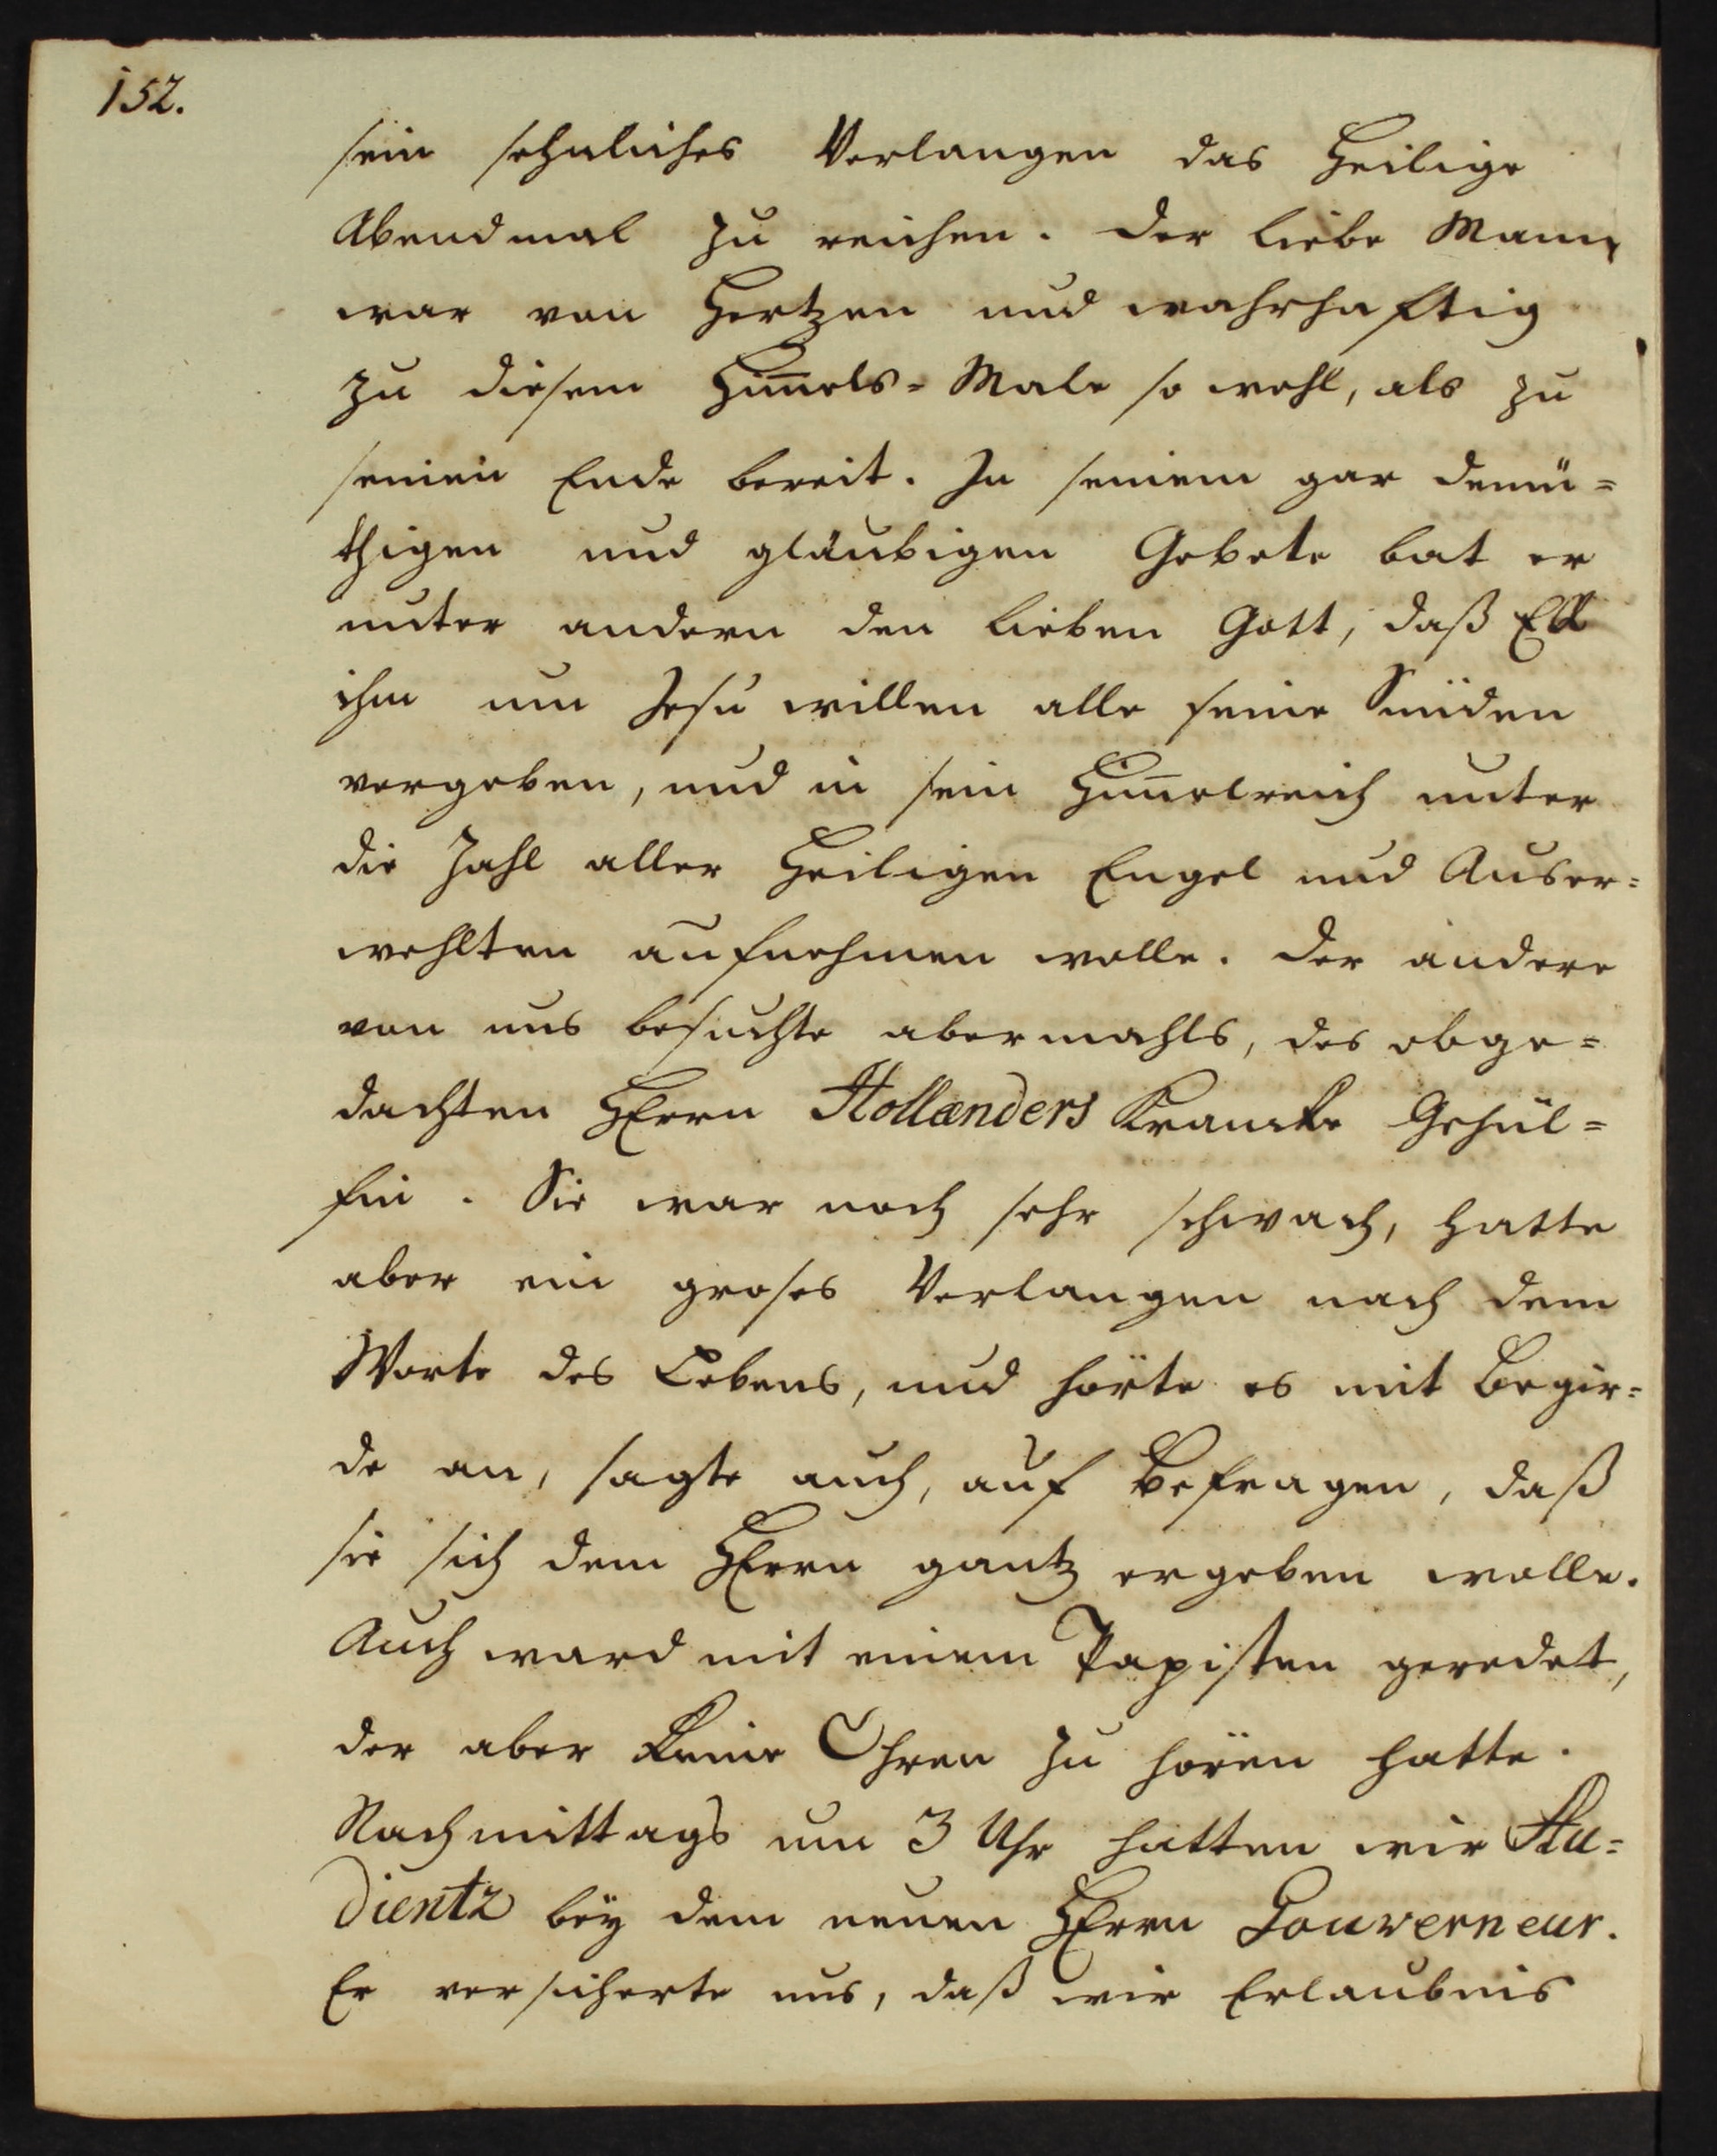 152.
sein sehnliches Verlangen das Heilige
Abendmal zu reichen. Der liebe Mann
war von Hertzen und wahrhafftig
zu diesem Him̅els-Male so wohl, als zu
seinen Ende bereit. In seinem gar demü=
thigen und gläubigen Gebete bat er
unter andern den lieben Gott, daß ER
ihm um Jesu willen alle seine Sünden
vergeben, und in sein Him̅elreich unter
die Zahl aller Heiligen Engel und Auser=
wehlten aufnehmen wolle. Der andere
von uns besuchte abermahls, des obge=
dachten HErrn Hollænders Krancke Gehül=
fin. Sie war noch sehr schwach, hatte
aber ein groses Verlangen nach dem
Worte des Lebens, und hörte es mit Begir=
de an, sagte auch, auf Befragen, daß
sie sich dem HErrn gantz ergeben wolle.
Auch ward mit einem Papisten geredet,
der aber keine Ohren zu hören hatte.
Nachmittags um 3 Uhr hatten wir Au=
dientz bey dem neuen HErrn Gouverneur.
Er versicherte uns, daß wir Erlaubnis